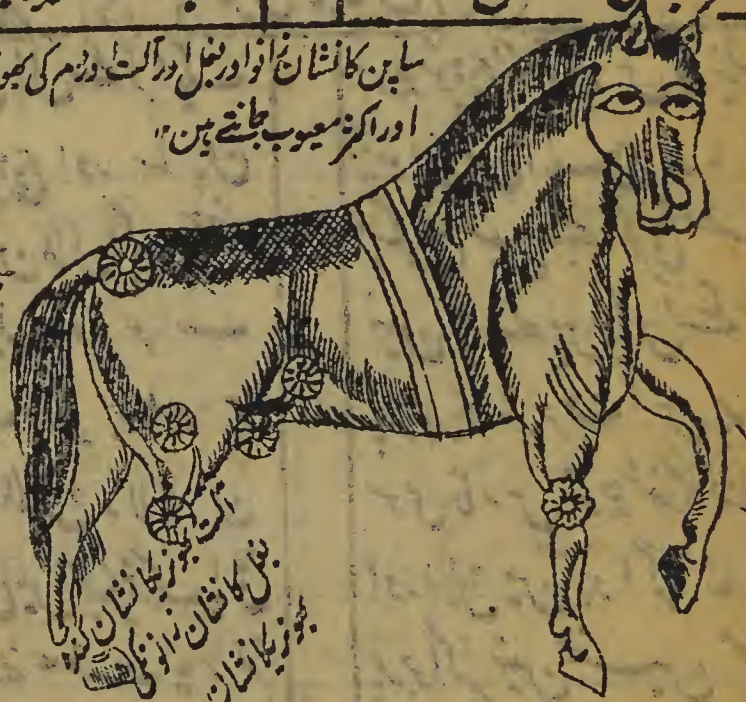 ساپن کا نشان زانو اور بغل اور آلت اور دم کی بھو
اور اکثر معیوب جانتے ہین
آلت
بھونریکا نشان
بغل کا نشان زانو کی
بھونریکا نشان